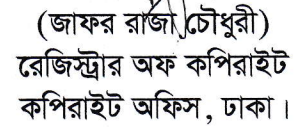 (জাফর রাজা চৌধুরী)
রেজিস্ট্রার অফ কপিরাইট
কপিরাইট অফিস, ঢাকা।